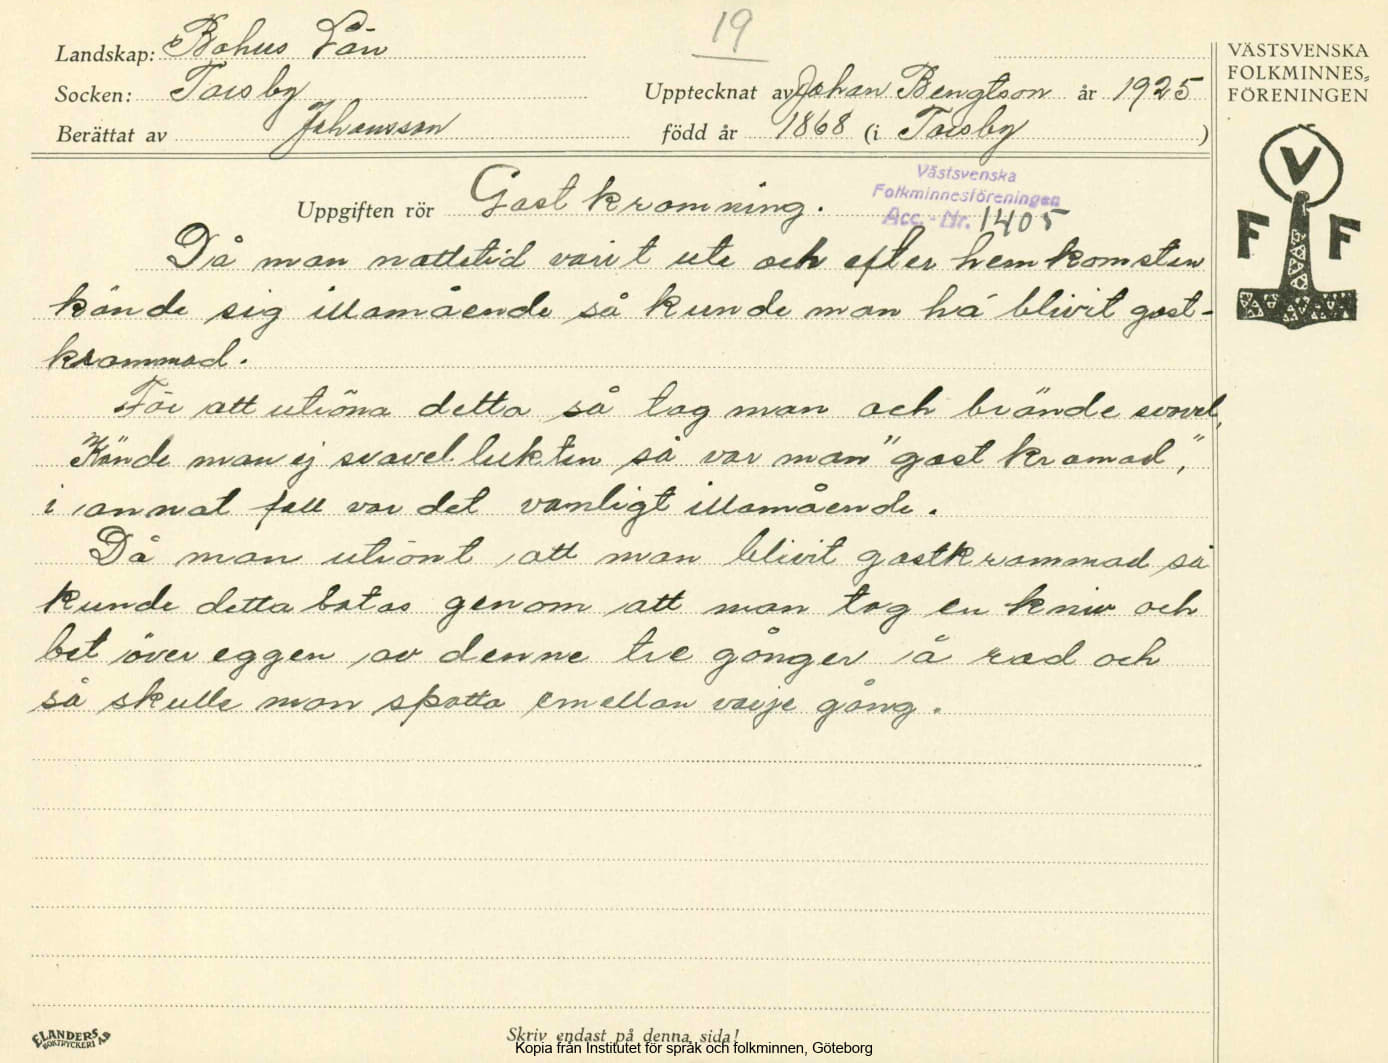 19
Landskap: Bohus Län
Socken: Torsby
Upptecknat av Johan Bengtson år 1925
Berättat av Johansson
född år 1868 (i Torsby)
VÄSTSVENSKA
FOLKMINNES=
FÖRENINGEN
V
F F
Uppgiften rör Gastkramning.
Västsvenska
Folkminnesföreningen
Acc. - Nr. 1405
Då man nattetid varit ute och efter hemkomsten
kände sig illamående så kunde man ha blivit gast-
krammad.
För att utröna detta så tog man och brände svavel,
Kände man ej svavellukten så var man "gastkramad",
i annat fall var det vanligt illamående.
Då man utrönt att man blivit gastkrammad så
kunde detta botas genom att man tog en kniv och
bet över eggen av denne tre gånger å rad och
så skulle man spotta emellan varje gång.
ELANDERS
BOKTRYCKERI A.B
Skriv endast på denna sida!
Kopia från Institutet för språk och folkminnen, Göteborg